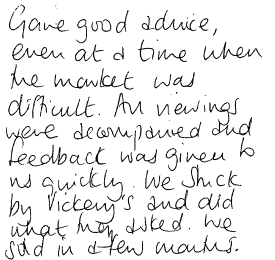 Gave good advice,
even at a time when
the market was
difficult. All viewings
were accompanied and
feedback was given to
us quickly. We stuck
by Vickery's and did
what they asked. We
sold in a few months.